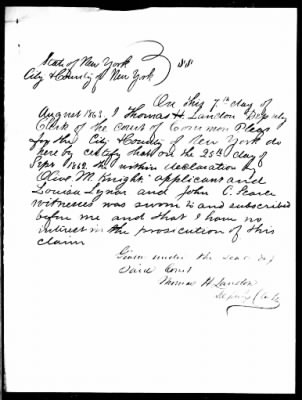 State of New York
City & County of New York } SS
On this 7th day of
August 1863, I Thomas H. Landon Deputy
Clerk of the Court of Common Pleas
for the City & County of New York do
here by certify that on the 25th day of
Sept 1862 the within declaration by
Olive M. Knight applicant and
Louisa Lynar and John C. Pearce
witnesses was sworn to and subscribed
before me and that I have no
interest in the prosecution of this
claim
Given under the seal of
said Court
Thomas H Landon
Deputy Clerk